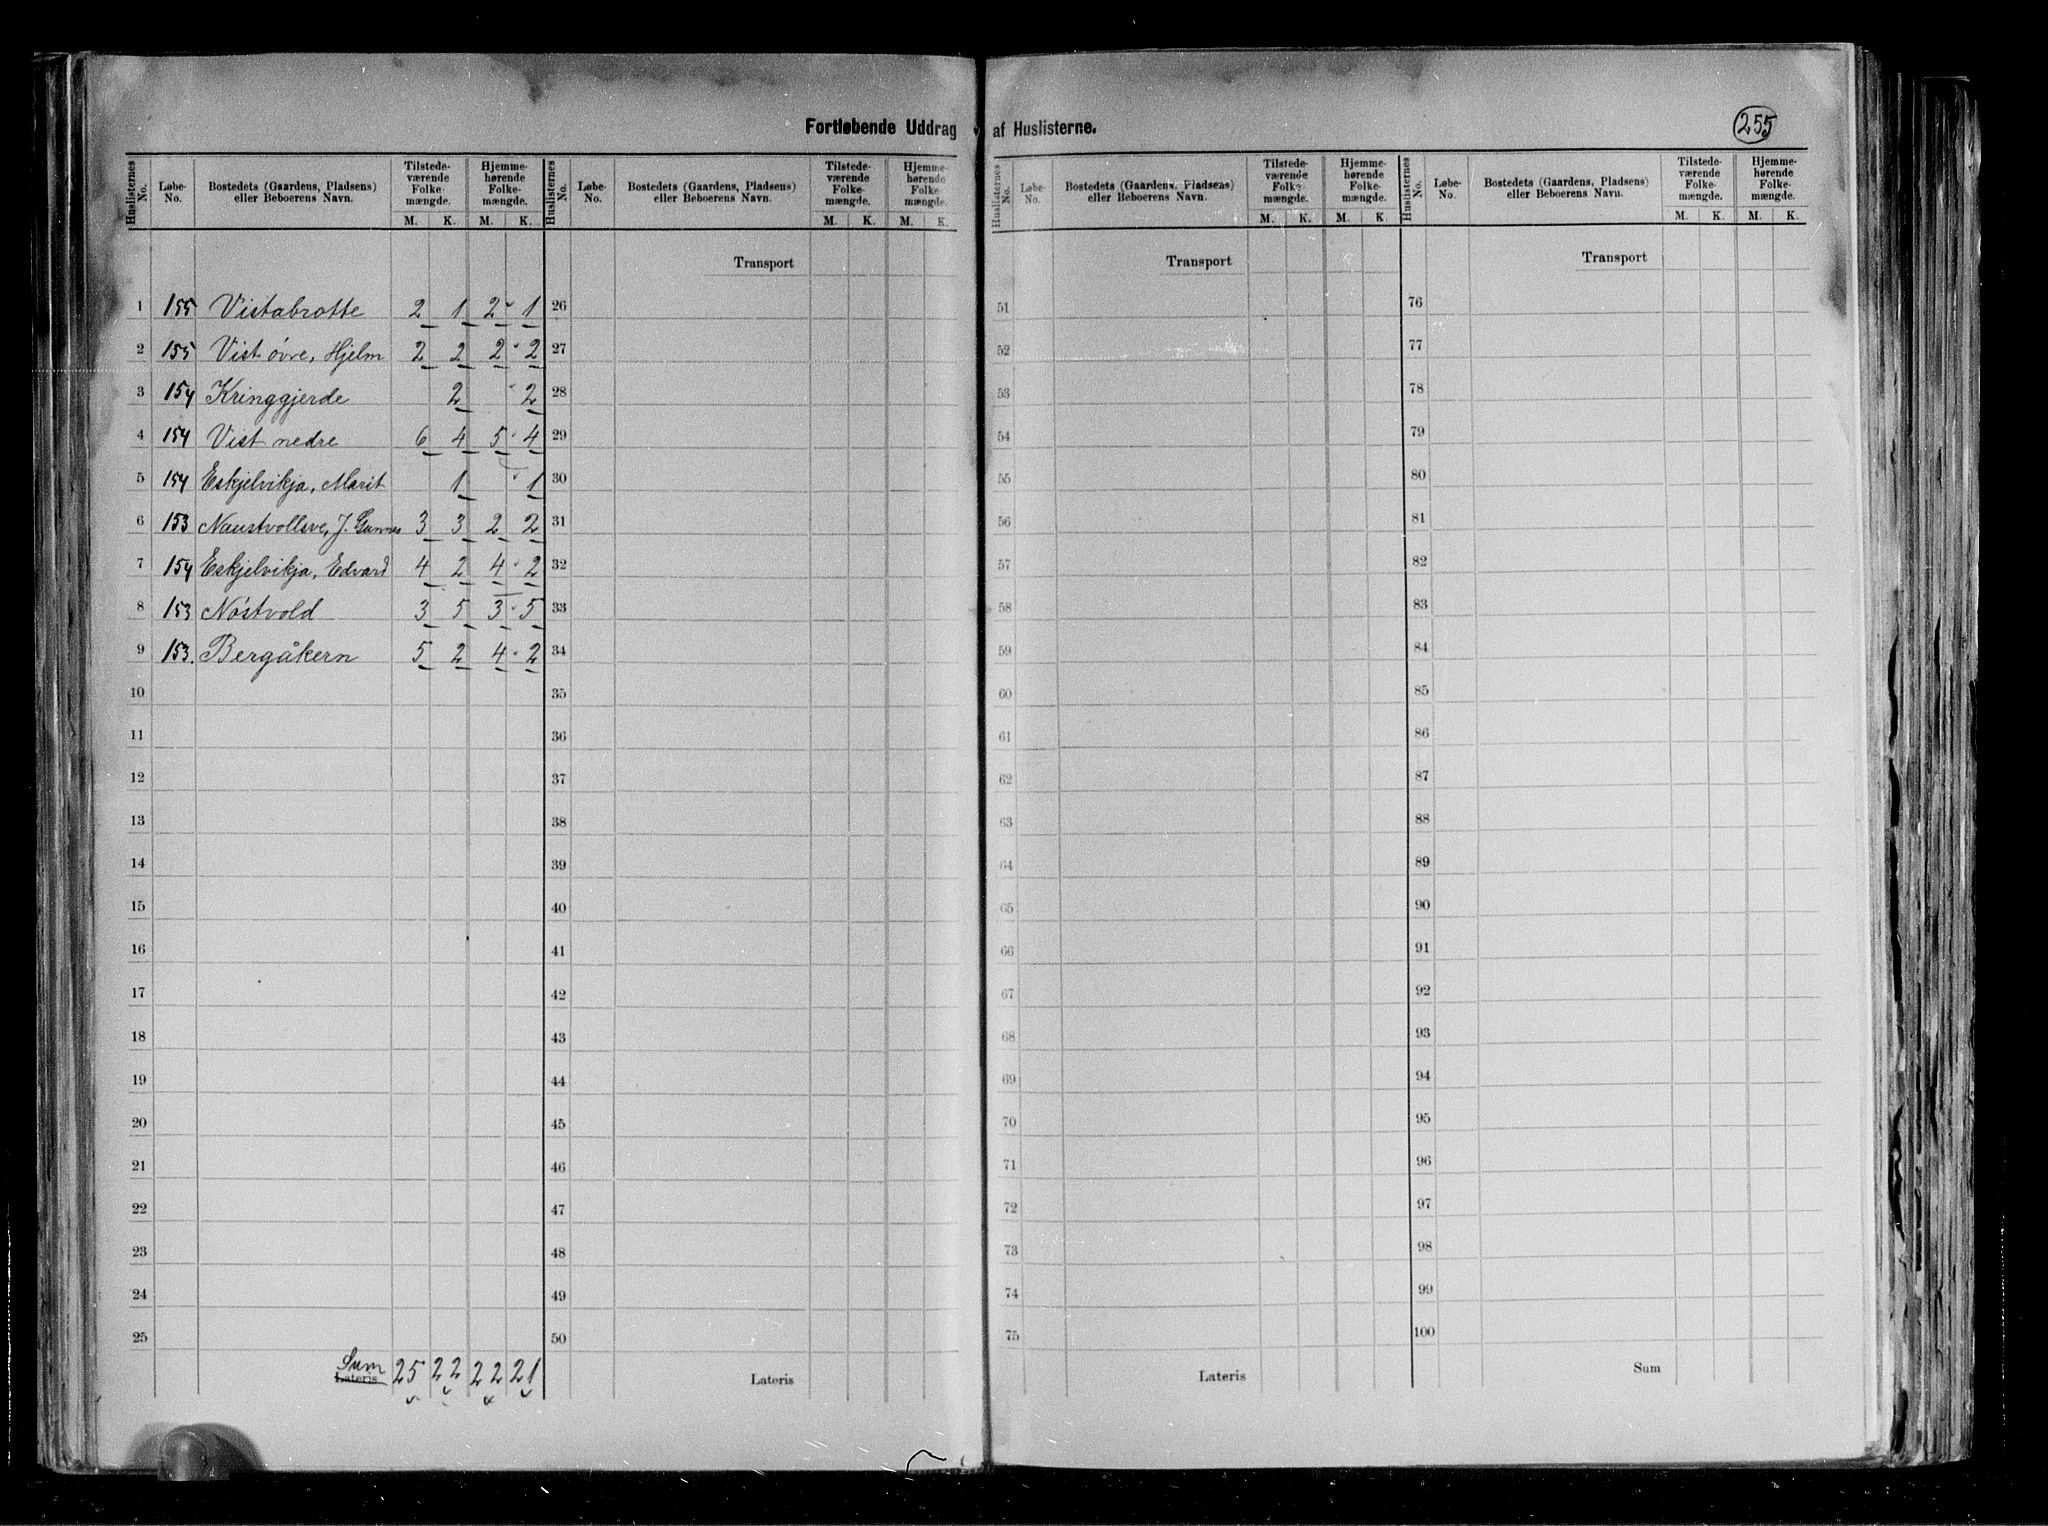 Fortløbende Uddrag af Huslisterne.
255
Huslisternes No. Løbe-No. Bostedets (Gaardens, Pladsens) eller Beboerens Navn. Tilstedeværende Folkemængde. M. K. Hjemmehørende Folkemængde. M. K.
Huslisternes No. Løbe-No. Bostedets (Gaardens, Pladsens) eller Beboerens Navn. Tilstedeværende Folkemængde. M. K. Hjemmehørende Folkemængde. M. K.
Huslisternes No. Løbe-No. Bostedets (Gaardens, Pladsens) eller Beboerens Navn. Tilstedeværende Folkemængde. M. K. Hjemmehørende Folkemængde. M. K.
Huslisternes No. Løbe-No. Bostedets (Gaardens, Pladsens) eller Beboerens Navn. Tilstedeværende Folkemængde. M. K. Hjemmehørende Folkemængde. M. K.
Transport Transport Transport
1 155 Vistabrotte 2 1 2 1 26 51 76
2 155 Vist øvre, Hjelm 2 2 2 2 27 52 77
3 154 Kringgjerde 2 2 28 53 78
4 154 Vist nedre 6 4 5 4 29 54 79
5 154 Eskjelvikja, Marit 1 1 30 55 80
6 153 Naustvollsve, J. Gunnes 3 3 2 2 31 56 81
7 154 Eskjelvikja, Edvard 4 2 4 2 32 57 82
8 153 Nøstvold 3 5 3 5 33 58 83
9 153. Bergåkern 5 2 4 2 34 59 84
10 35 60 85
11 36 61 86
12 37 62 87
13 38 63 88
14 39 64 89
15 40 65 90
16 41 66 91
17 42 67 92
18 43 68 93
19 44 69 94
20 45 70 95
21 46 71 96
22 47 72 97
23 48 73 98
24 49 74 99
25 50 75 100
Sum Lateris 25 22 22 21 Lateris Lateris Sum